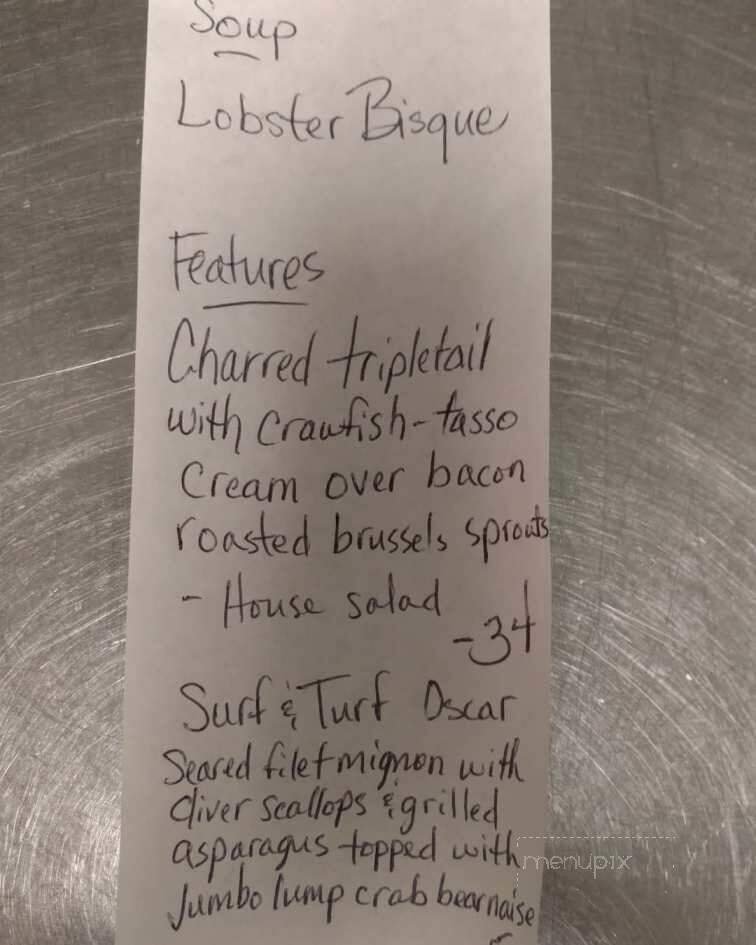 Soup
Lobster Bisque
Features
Charred tripletail
with crawfish-tasso
cream over bacon
roasted brussels sprouts
- House salad
-34
Surf & Turf Oscar
Seared filet mignon with
diver scallops & grilled
asparagus topped with
Jumbo lump crab bearnaise
menupix